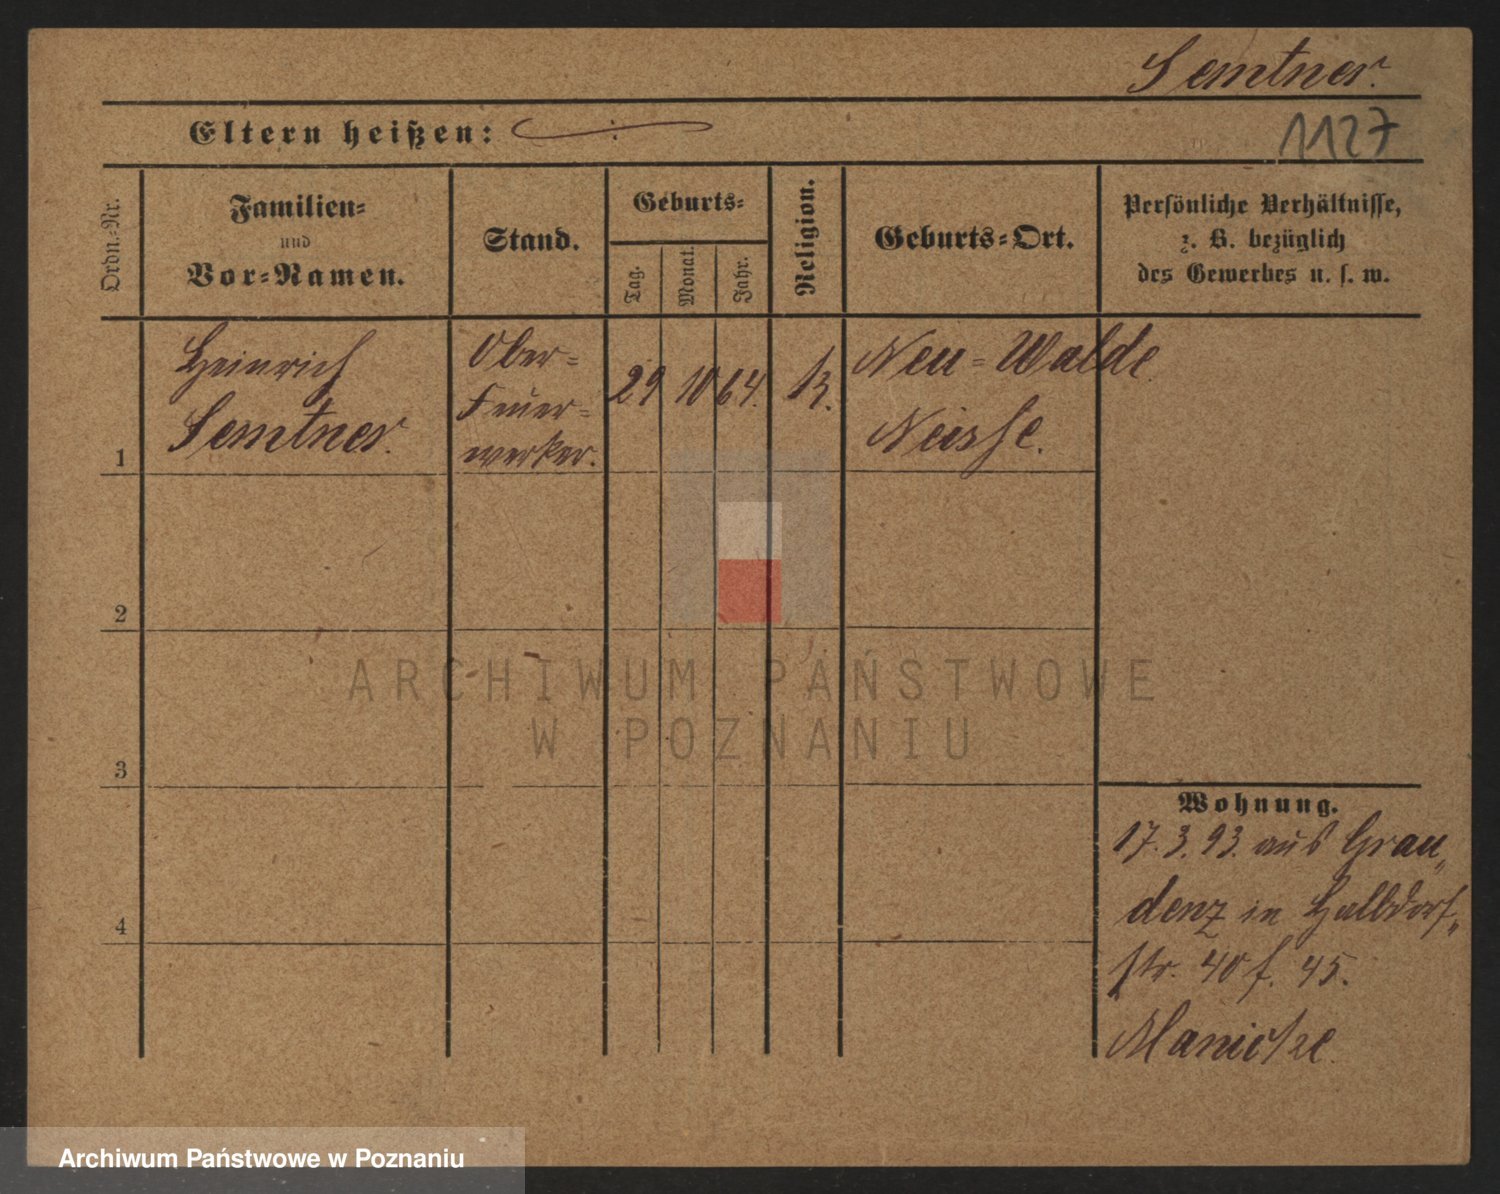 Semtner.
Eltern heißen:
1127
Ordn.-Nr.
Familien-
und
Vor-Namen.
Stand.
Geburts-
Tag.
Monat.
Jahr.
Religion.
Geburts-Ort.
Persönliche Verhältnisse,
z. B. bezüglich
des Gewerbes u. s. w.
1
Heinrich
Semtner.
Ober-
Feuer-
werker.
29 10 64.
Neu-Walde
Neisse.
2
3
4
Wohnung.
17.3.93. aus Grau„
denz in Halbdorf„
str. 40 f. 45.
ARCHIWUM PAŃSTWOWE
W POZNANIU
Archiwum Państwowe w Poznaniu